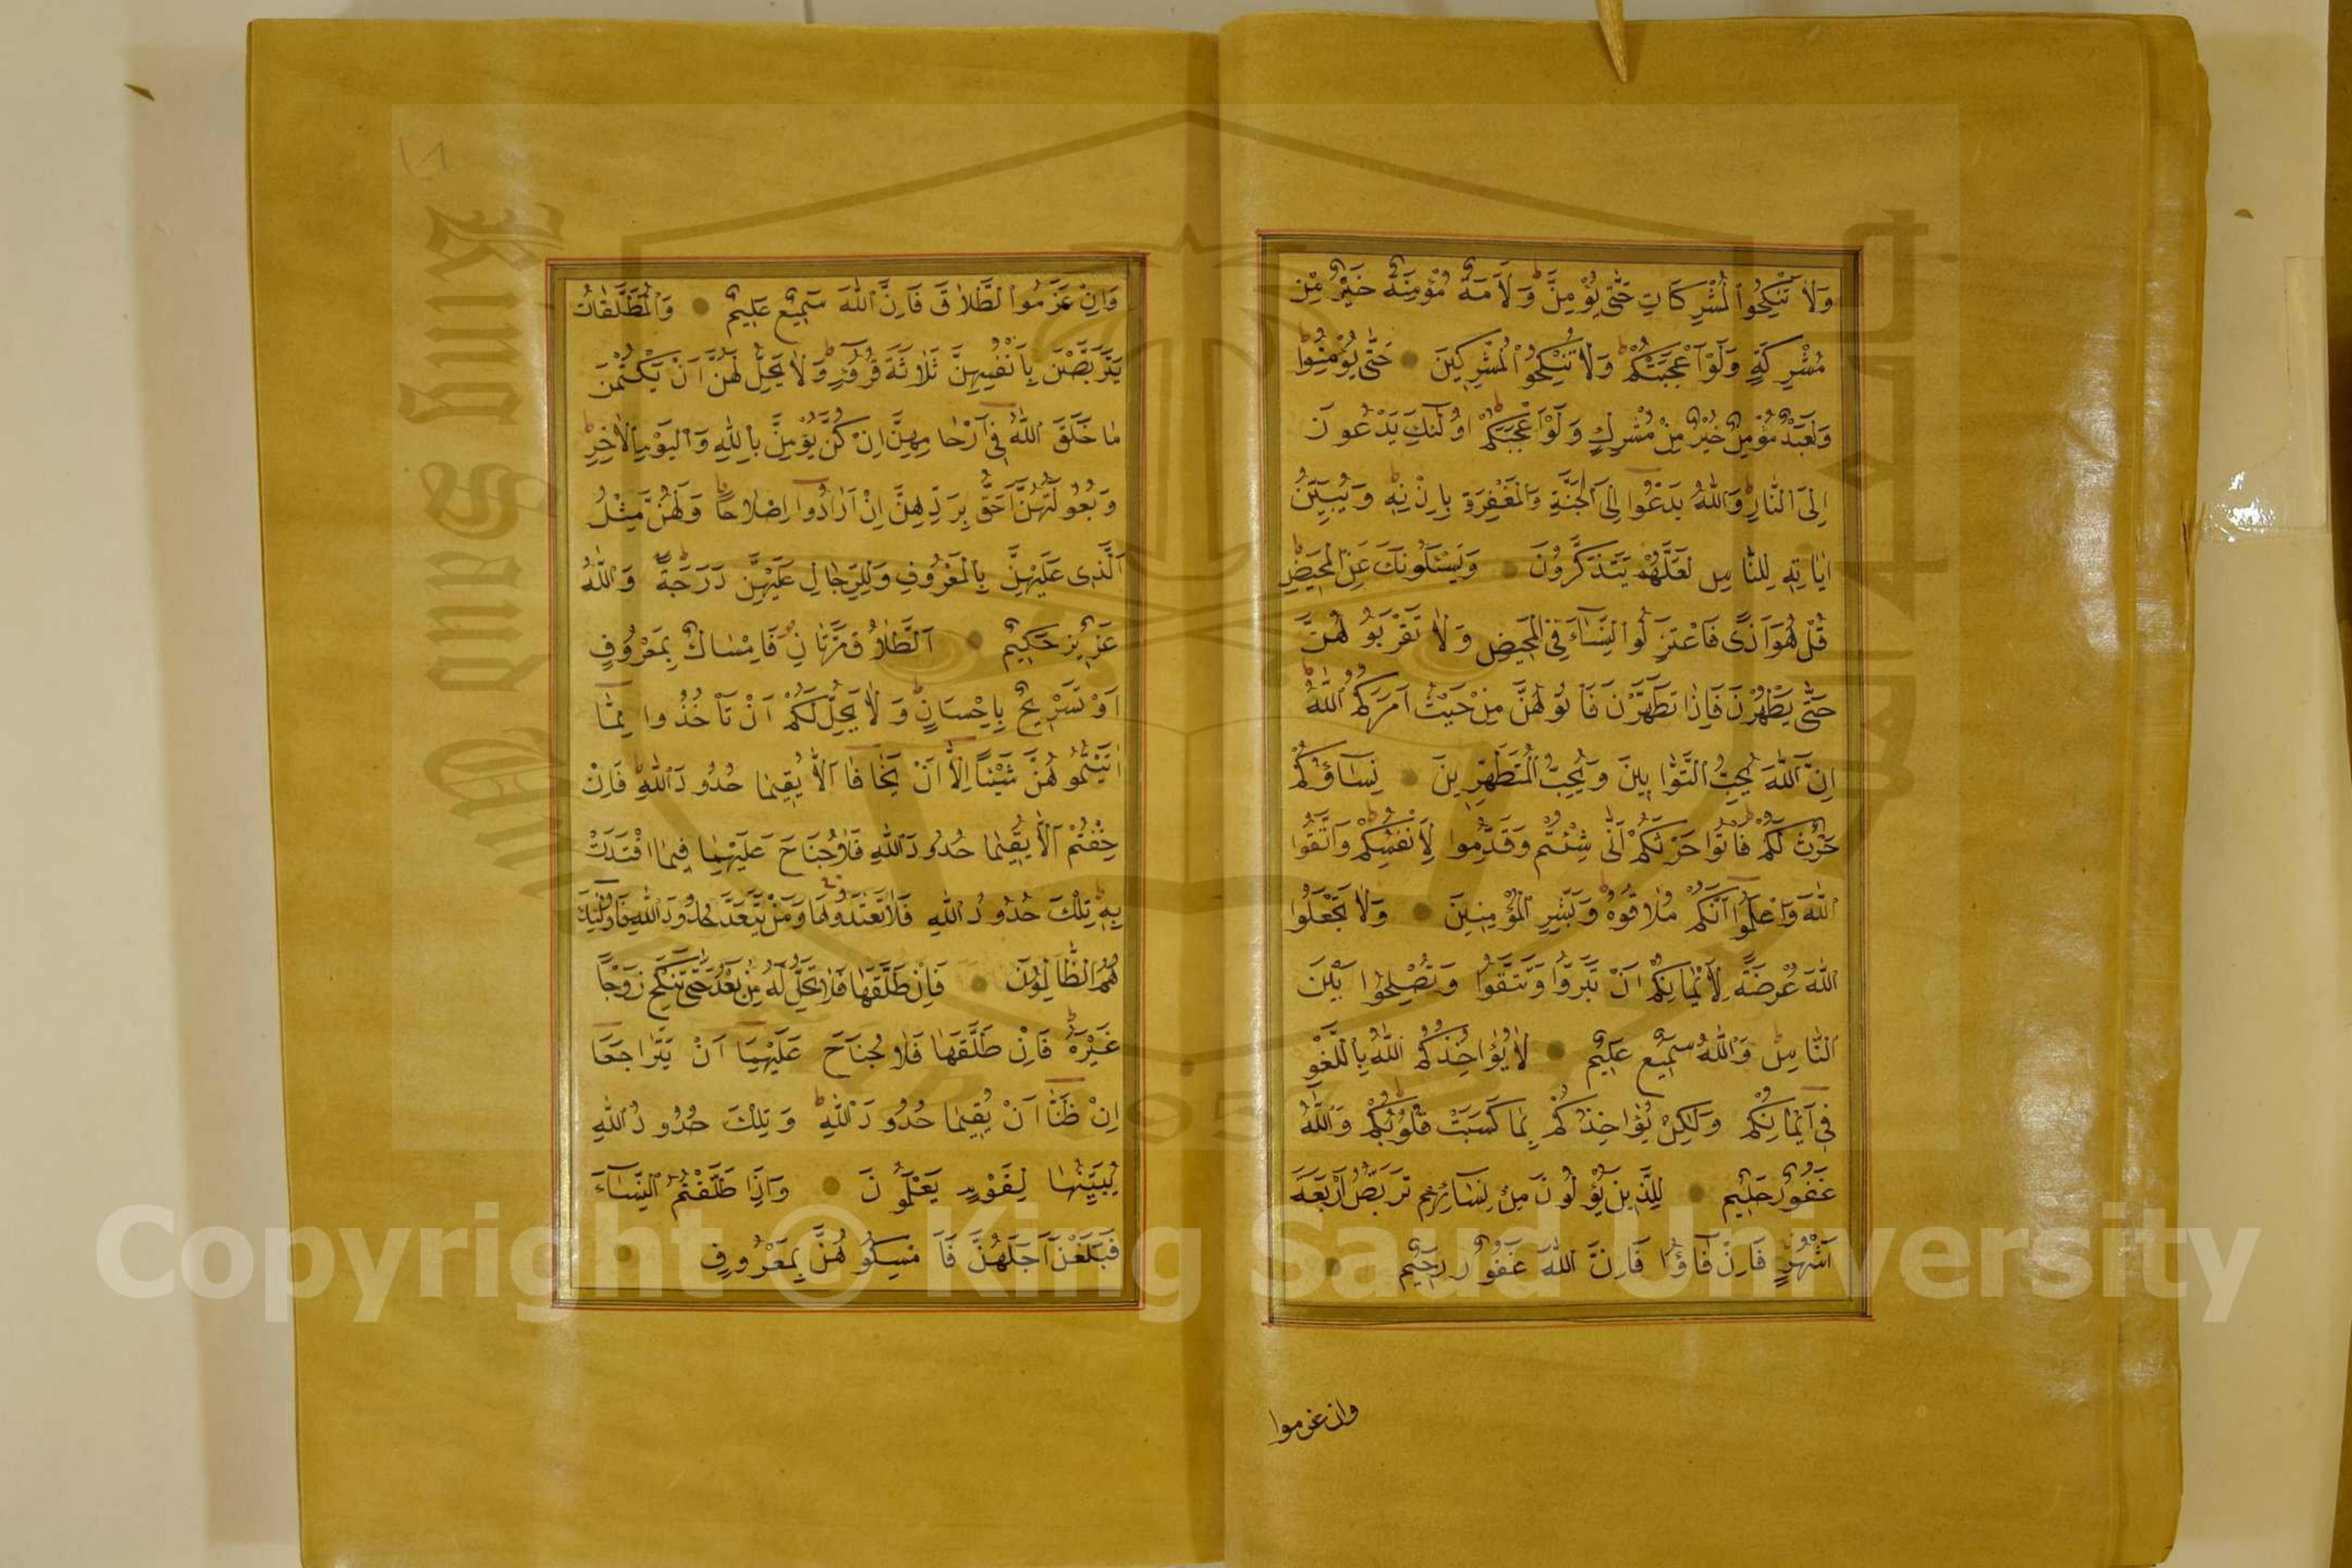 وَلَا تَنْكِحُوا الْمُشْرِكَاتِ حَتّٰى يُؤْمِنَّ وَلَاَمَةٌ مُؤْمِنَةٌ خَيْرٌ مِنْ
مُشْرِكَةٍ وَلَوْ اَعْجَبَتْكُمْ وَلَا تُنْكِحُوا الْمُشْرِكِينَ حَتّٰى يُؤْمِنُوا
وَلَعَبْدٌ مُؤْمِنٌ خَيْرٌ مِنْ مُشْرِكٍ وَلَوْ اَعْجَبَكُمْ اُولٰئِكَ يَدْعُونَ
اِلَى النَّارِ وَاللّٰهُ يَدْعُوا اِلَى الْجَنَّةِ وَالْمَغْفِرَةِ بِاِذْنِهِ وَيُبَيِّنُ
اٰيَاتِهِ لِلنَّاسِ لَعَلَّهُمْ يَتَذَكَّرُونَ وَيَسْئَلُونَكَ عَنِ الْمَحِيضِ
قُلْ هُوَ اَذًى فَاعْتَزِلُوا النِّسَاءَ فِي الْمَحِيضِ وَلَا تَقْرَبُوهُنَّ
حَتّٰى يَطْهُرْنَ فَاِذَا تَطَهَّرْنَ فَأْتُوهُنَّ مِنْ حَيْثُ اَمَرَكُمُ اللّٰهُ
اِنَّ اللّٰهَ يُحِبُّ التَّوَّابِينَ وَيُحِبُّ الْمُتَطَهِّرِينَ نِسَاؤُكُمْ
حَرْثٌ لَكُمْ فَأْتُوا حَرْثَكُمْ اَنّٰى شِئْتُمْ وَقَدِّمُوا لِاَنْفُسِكُمْ وَاتَّقُوا
اللّٰهَ وَاعْلَمُوا اَنَّكُمْ مُلَاقُوهُ وَبَشِّرِ الْمُؤْمِنِينَ وَلَا تَجْعَلُوا
اللّٰهَ عُرْضَةً لِاَيْمَانِكُمْ اَنْ تَبَرُّوا وَتَتَّقُوا وَتُصْلِحُوا بَيْنَ
النَّاسِ وَاللّٰهُ سَمِيعٌ عَلِيمٌ لَا يُؤَاخِذُكُمُ اللّٰهُ بِاللَّغْوِ
فِي اَيْمَانِكُمْ وَلٰكِنْ يُؤَاخِذُكُمْ بِمَا كَسَبَتْ قُلُوبُكُمْ وَاللّٰهُ
غَفُورٌ حَلِيمٌ لِلَّذِينَ يُؤْلُونَ مِنْ نِسَائِهِمْ تَرَبُّصُ اَرْبَعَةِ
اَشْهُرٍ فَاِنْ فَاؤُا فَاِنَّ اللّٰهَ غَفُورٌ رَحِيمٌ
وان عزموا
١٨
وَاِنْ عَزَمُوا الطَّلَاقَ فَاِنَّ اللّٰهَ سَمِيعٌ عَلِيمٌ وَالْمُطَلَّقَاتُ
يَتَرَبَّصْنَ بِاَنْفُسِهِنَّ ثَلَاثَةَ قُرُوءٍ وَلَا يَحِلُّ لَهُنَّ اَنْ يَكْتُمْنَ
مَا خَلَقَ اللّٰهُ فِي اَرْحَامِهِنَّ اِنْ كُنَّ يُؤْمِنَّ بِاللّٰهِ وَالْيَوْمِ الْاٰخِرِ
وَبُعُولَتُهُنَّ اَحَقُّ بِرَدِّهِنَّ اِنْ اَرَادُوا اِصْلَاحًا وَلَهُنَّ مِثْلُ
الَّذِي عَلَيْهِنَّ بِالْمَعْرُوفِ وَلِلرِّجَالِ عَلَيْهِنَّ دَرَجَةٌ وَاللّٰهُ
عَزِيزٌ حَكِيمٌ اَلطَّلَاقُ مَرَّتَانِ فَاِمْسَاكٌ بِمَعْرُوفٍ
اَوْ تَسْرِيحٌ بِاِحْسَانٍ وَلَا يَحِلُّ لَكُمْ اَنْ تَأْخُذُوا مِمَّا
اٰتَيْتُمُوهُنَّ شَيْئًا اِلَّا اَنْ يَخَافَا اَلَّا يُقِيمَا حُدُودَ اللّٰهِ فَاِنْ
خِفْتُمْ اَلَّا يُقِيمَا حُدُودَ اللّٰهِ فَلَا جُنَاحَ عَلَيْهِمَا فِيمَا افْتَدَتْ
بِهِ تِلْكَ حُدُودُ اللّٰهِ فَلَا تَعْتَدُوهَا وَمَنْ يَتَعَدَّ حُدُودَ اللّٰهِ فَاُولٰئِكَ
هُمُ الظَّالِمُونَ فَاِنْ طَلَّقَهَا فَلَا تَحِلُّ لَهُ مِنْ بَعْدُ حَتّٰى تَنْكِحَ زَوْجًا
غَيْرَهُ فَاِنْ طَلَّقَهَا فَلَا جُنَاحَ عَلَيْهِمَا اَنْ يَتَرَاجَعَا
اِنْ ظَنَّا اَنْ يُقِيمَا حُدُودَ اللّٰهِ وَتِلْكَ حُدُودُ اللّٰهِ
يُبَيِّنُهَا لِقَوْمٍ يَعْلَمُونَ وَاِذَا طَلَّقْتُمُ النِّسَاءَ
فَبَلَغْنَ اَجَلَهُنَّ فَاَمْسِكُوهُنَّ بِمَعْرُوفٍ
Copyright © King Saud University